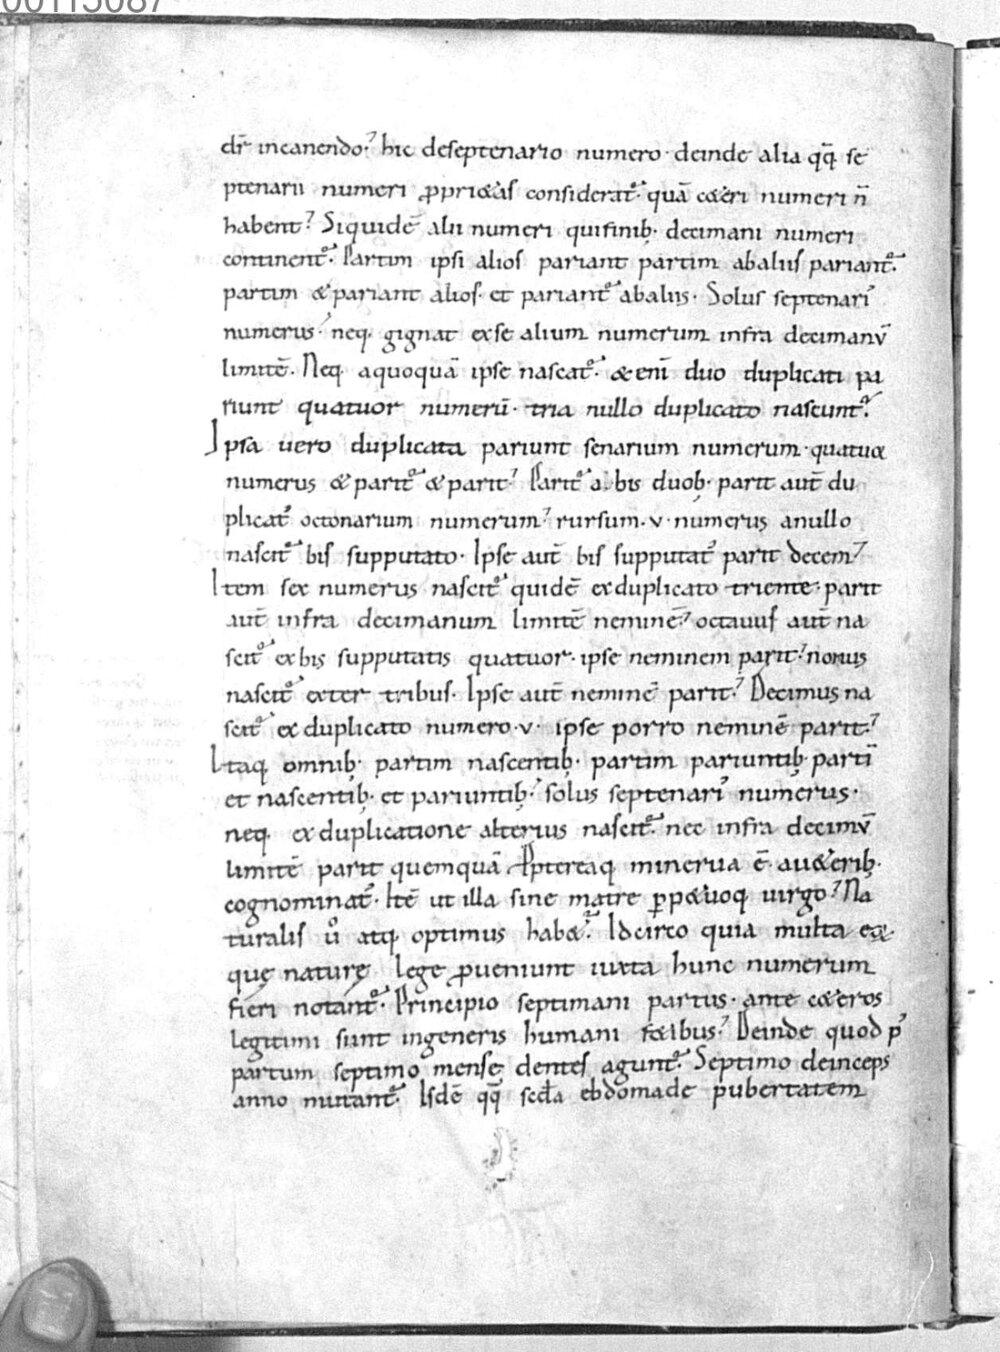 00115087
dr̄ incanendo. hic deseptenario numero· deinde alia qq̄ se
ptenarii numeri ꝓpri&as considerat᷑· quā c&eri numeri n̄
habent. Siquidē alii numeri quifinib; decimani numeri
continent᷑· Partim ipsi alios pariant partim abaliis pariant᷑·
partim & pariant alios· et pariant᷑ abaliis· Solus septenari᷒
numerus· neq; gignat exse alium numerum infra decimanū
limitē· Neq; aquoquā ipse nascat᷑· & enī duo duplicati pa
riunt quatuor numerū· tria nullo duplicato nascunt᷑·
Ipsa uero duplicata pariunt senarium numerum· quatuor
numerus & parit᷑ & parit. Parit᷑ a bis duob; parit aut̄ du
plicat᷒ octonarium numerum. rursum· v· numerus anullo
nascit᷑ bis supputato· Ipse aut̄ bis supputat᷒ parit decem.
Item sex numerus nascit᷑ quidē exduplicato triente· parit
aut̄ infra decimanum limitē neminē. octauus aut̄ na
scit᷑ exbis supputatis quatuor· ipse neminem parit. nonus
nascit᷑ exter tribus· Ipse aut̄ neminē parit. Decimus na
scit᷑ exduplicato numero· v· ipse porro neminē parit.
Itaq; omnib; partim nascentib; partim pariuntib; partī
et nascentib; et pariuntib; solus septenari᷒ numerus·
neq; exduplicatione alterius nascit᷑· nec infra decimū
limitē parit quemquā Ꝓptereaq; minerua ē· au&erib;
cognominat᷒· Itē ut illa sine matre ꝑp&uoq; virgo. Na
turalis u᷒ atq; optimus hab&᷑· Idcirco quia multa ex
quę naturę lege ꝓueniunt iuxta hunc numerum
fieri notant᷑· Principio septimani partus· ante c&eros
legitimi sunt ingeneris humani f&ibus. Deinde quod p᷒
partum septimo mense dentes agunt᷑· Septimo deinceps
anno mutant᷑· Isdē qq̄ secd̄a ebdomade pubertatem